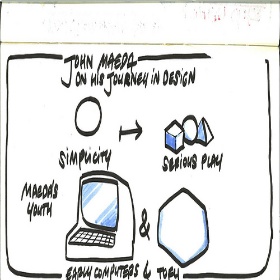 JOHN MAEDA
ON HIS JOURNEY IN DESIGN
SIMPLICITY
SERIOUS PLAY
MAEDA'S
YOUTH
&
EARLY COMPUTERS & TOFU